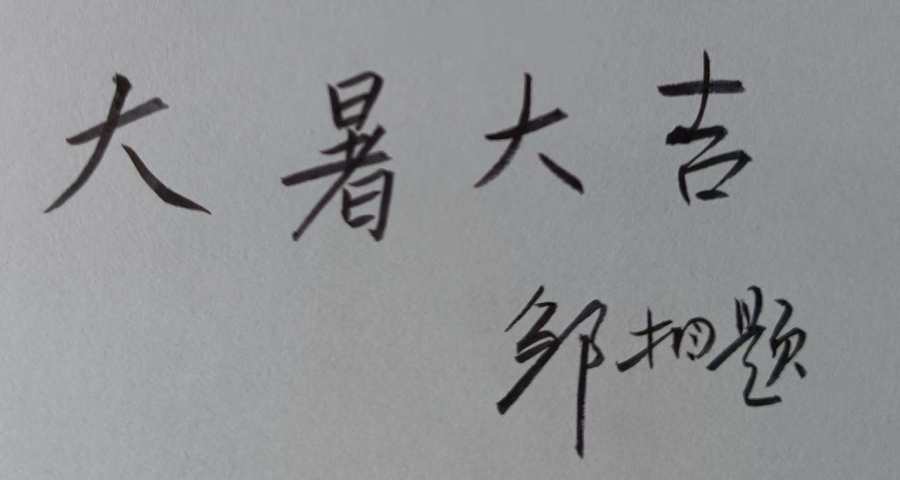 大暑大吉
邹相题